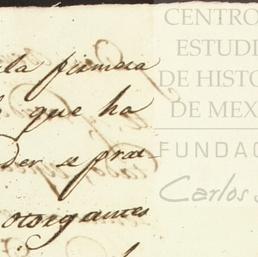 CENTRO
ESTUDI
DE HISTO
DE MEX
FUNDAC
Carlos
la firmeza
que ha
der se prac
otorgantes